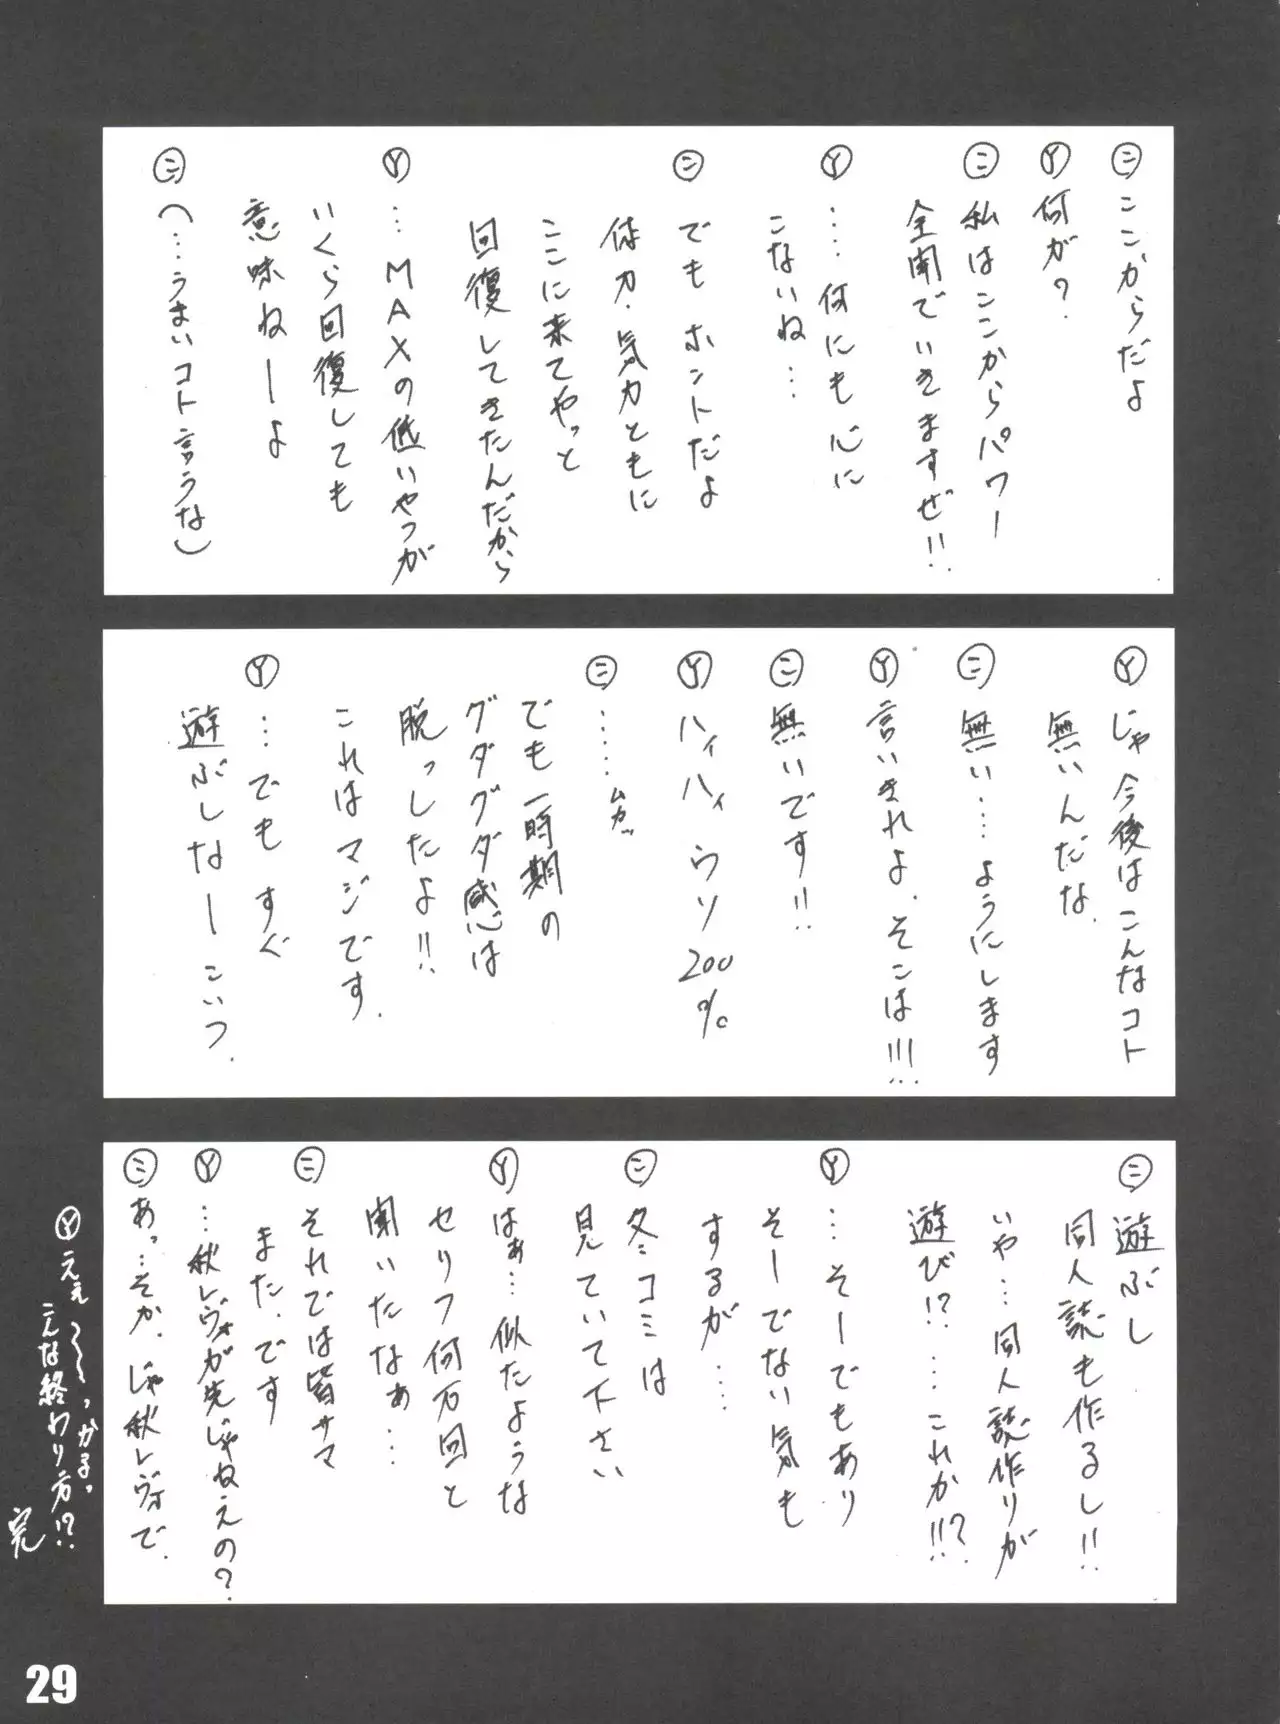 ㊁ ここからだよ
Ⓨ 何が?
㊁ 私はここからパワー
全開でいきますぜ!!
Ⓨ ‥‥何にも心に
こないね‥‥
㊁ でもホントだよ
体力・気力ともに
ここに来てやっと
回復してきたんだから
Ⓨ …MAXの低いやつが
いくら回復しても
意味ねーよ
㊁ (…うまいコト言うな)
Ⓨ じゃ今後はこんなコト
無いんだな.
㊁ 無い‥‥ようにします
Ⓨ 言いきれよ、そこは!!!
㊁ 無いです!!
Ⓨ ハイハイ ウソ200%
㊁ ‥‥‥ムカッ
でも一時期の
グダグダ感は
脱っしたよ!!
これはマジです.
Ⓨ …でもすぐ
遊ぶしなーこいつ.
㊁ 遊ぶし
同人誌も作るし!!
いや…同人誌作りが
遊び!?…これか!!?
Ⓨ …そーでもあり
そーでない気も
するが‥‥
㊁ 冬コミは
見ていて下さい
Ⓨ はぁ…似たような
セリフ何万回と
聞いたなぁ…
㊁ それでは皆サマ
また.です
Ⓨ …秋レヴォが先じゃねえの?
㊁ あっ…そか.じゃ秋レヴォで.
Ⓨ ええ〜〜っかるっ
こんな終わり方!?
完
29